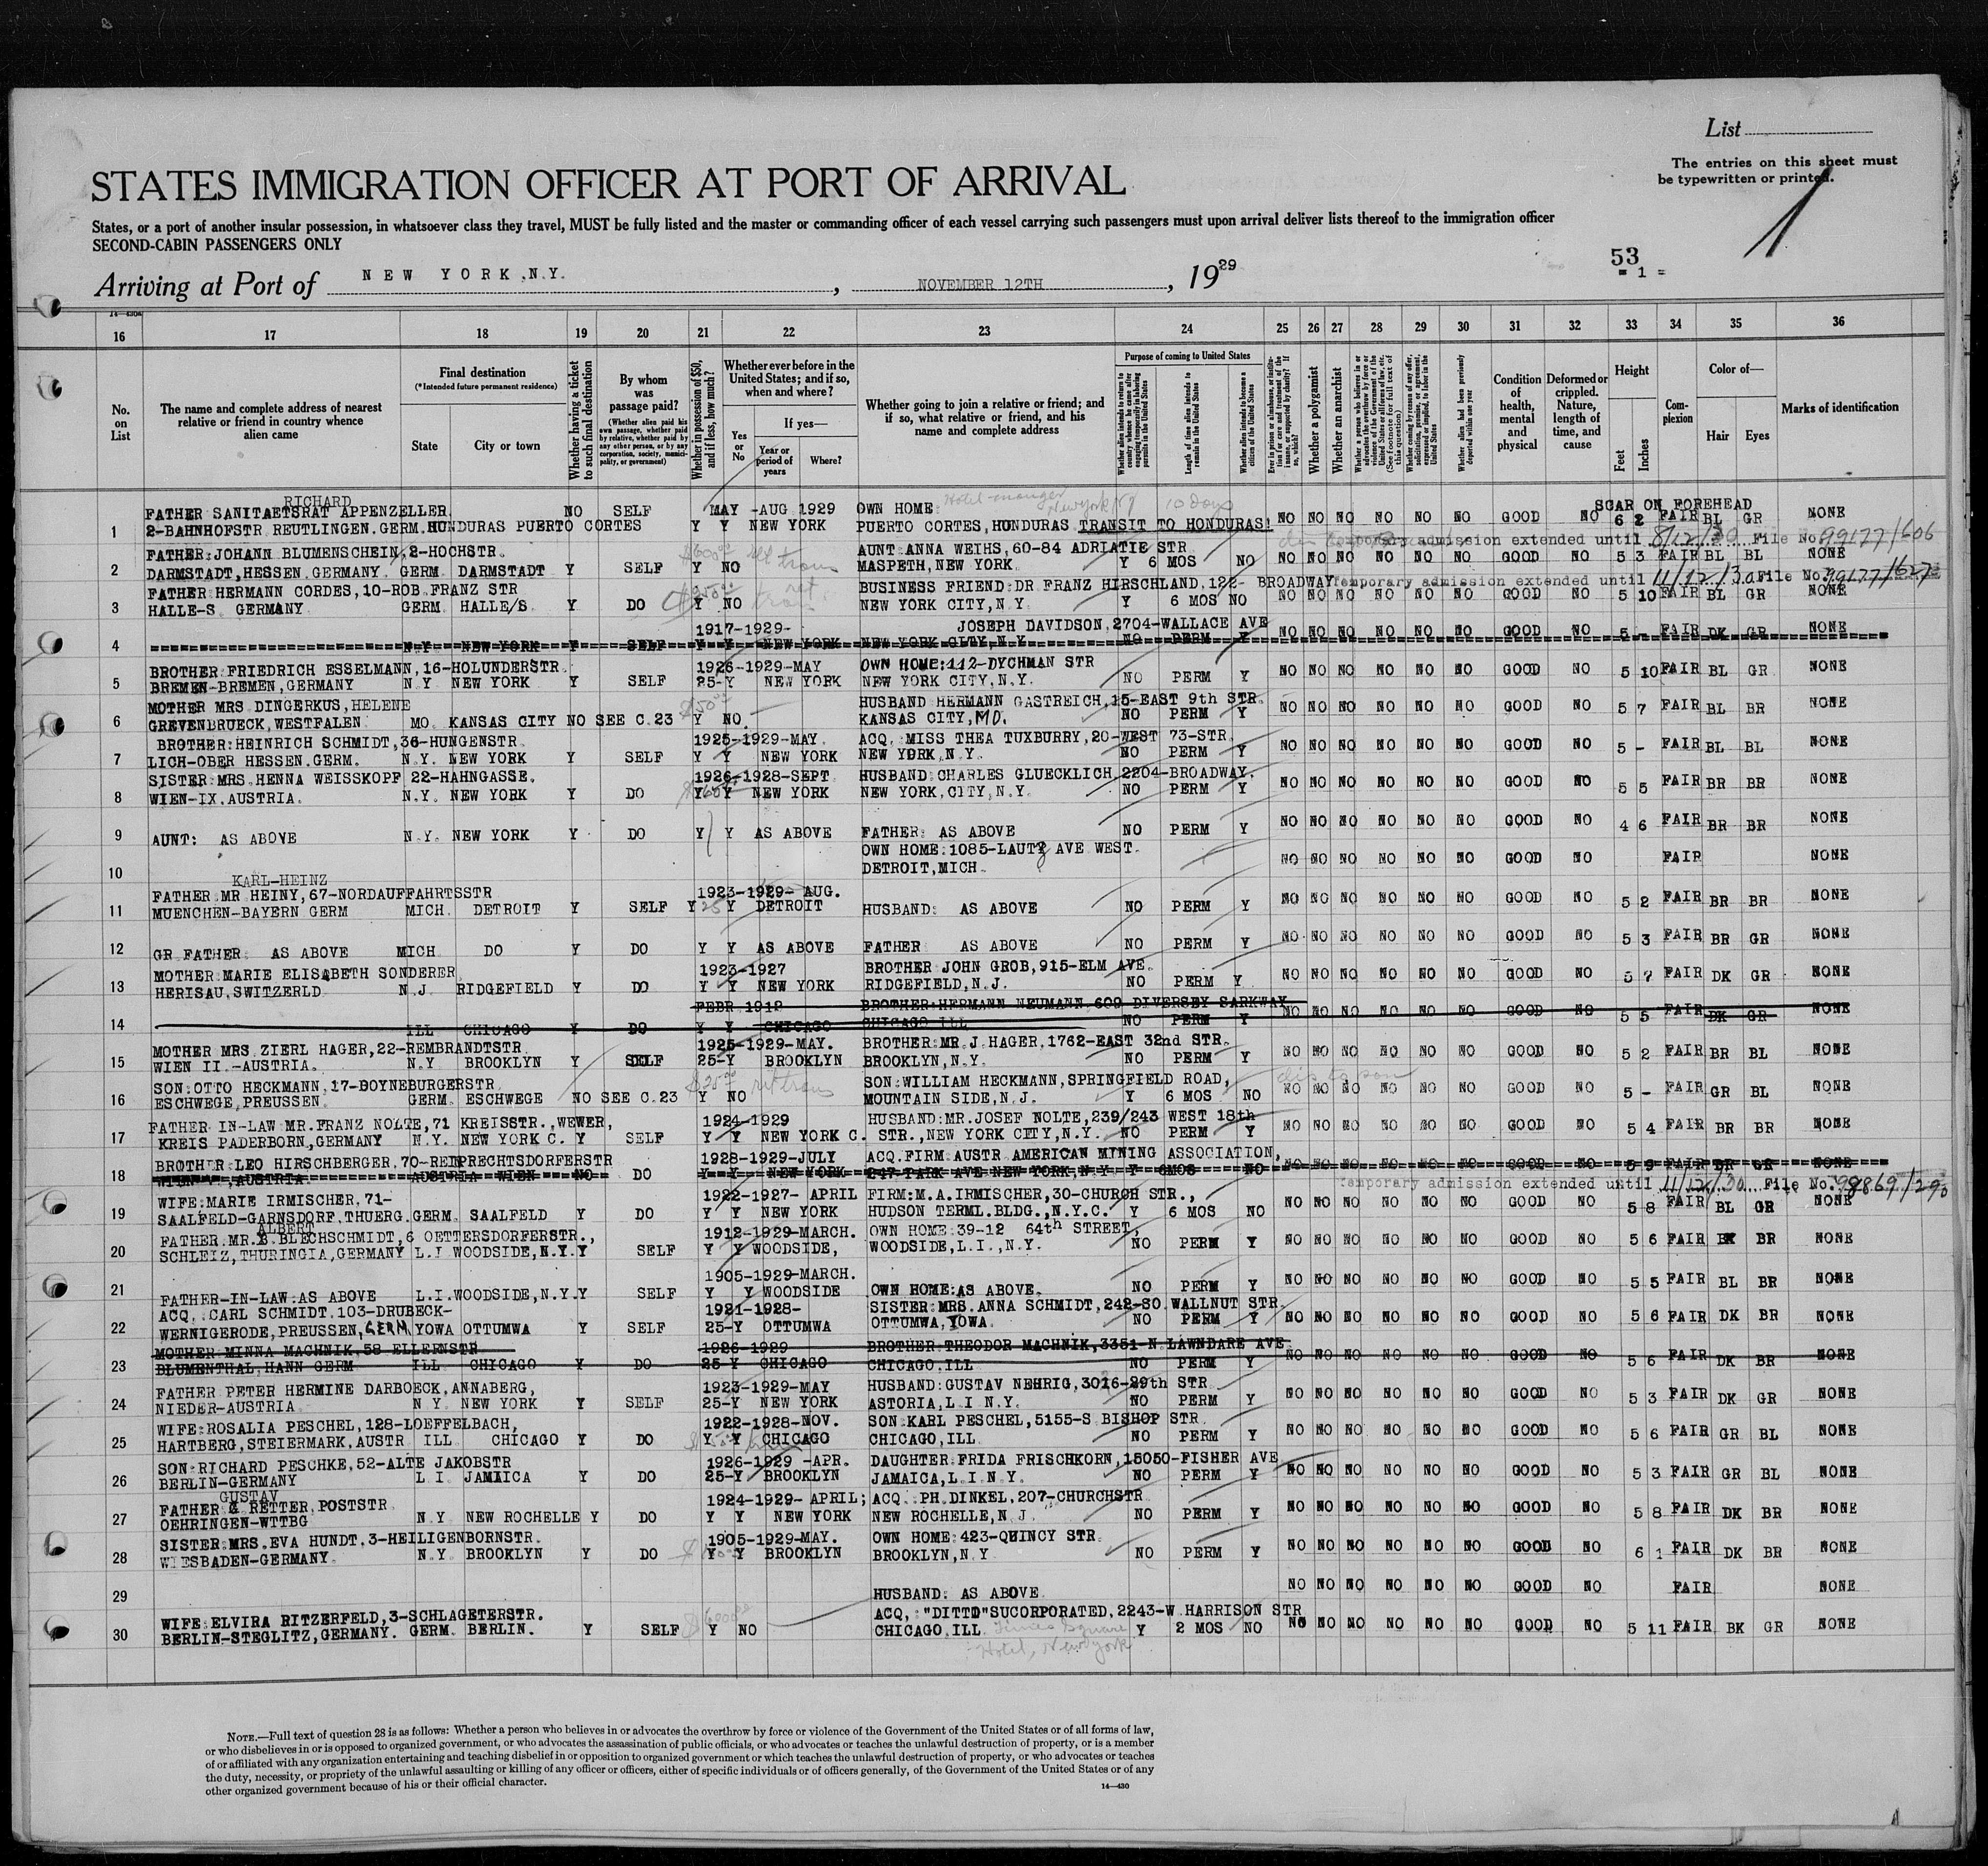 List
The entries on this sheet must
be typewritten or printed.
1
STATES IMMIGRATION OFFICER AT PORT OF ARRIVAL
States, or a port of another insular possession, in whatsoever class they travel, MUST be fully listed and the master or commanding officer of each vessel carrying such passengers must upon arrival deliver lists thereof to the immigration officer
SECOND-CABIN PASSENGERS ONLY
53
= 1 =
Arriving at Port of NEW YORK.N.Y. , NOVEMBER 12TH , 1929
16 17 18 19 20 21 22 23 24 25 26 27 28 29 30 31 32 33 34 35 36
No. on List
The name and complete address of nearest relative or friend in country whence alien came
Final destination
(*Intended future permanent residence)
State City or town
Whether having a ticket to such final destination
By whom was passage paid?
(Whether alien paid his own passage, whether paid by relative, whether paid by any other person, or by any corporation, society, municipality, or government)
Whether in possession of $50, and if less, how much?
Whether ever before in the United States; and if so, when and where?
Yes or No
If yes—
Year or period of years
Where?
Whether going to join a relative or friend; and if so, what relative or friend, and his name and complete address
Purpose of coming to United States
Length of time alien intends to remain in the United States
Whether alien intends to become a citizen of the United States
Whether a polygamist
Whether an anarchist
Condition of health, mental and physical
Deformed or crippled. Nature, length of time, and cause
Height
Feet Inches
Complexion
Color of—
Hair Eyes
Marks of identification
RICHARD
FATHER SANITAETSRAT APPENZELLER. NO SELF MAY -AUG 1929 OWN HOME: SCAR ON FOREHEAD
1 2-BAHNHOFSTR REUTLINGEN.GERM.HUNDURAS PUERTO CORTES Y Y NEW YORK PUERTO CORTES,HUNDURAS TRANSIT TO HONDURAS! 10 Days NO NO NO NO NO NO GOOD NO 6 2 FAIR BL GR NONE
Temporary admission extended until 8/12/30 File No 99177/606
FATHER:JOHANN BLUMENSCHEIN,2-HOCHSTR. AUNT:ANNA WEIHS,60-84 ADRIATIC STR
2 DARMSTADT,HESSEN.GERMANY GERM. DARMSTADT Y SELF Y NO MASPETH,NEW YORK. Y 6 MOS NO NO NO NO NO NO NO GOOD NO 5 3 FAIR BL BL NONE
Temporary admission extended until 11/12/30 File No 99177/627
FATHER HERMANN CORDES,10-ROB FRANZ STR BUSINESS FRIEND:DR FRANZ HIRSCHLAND,122- BROADWAY
3 HALLE-S GERMANY GERM. HALLE/S. Y DO Y NO NEW YORK CITY,N.Y. Y 6 MOS NO NO NO NO NO NO NO GOOD NO 5 10 FAIR BL GR NONE
1917-1929- JOSEPH DAVIDSON,2704-WALLACE AVE
4 N.Y. NEW YORK Y SELF Y Y NEW YORK NEW YORK CITY,N.Y. NO PERM Y NO NO NO NO NO NO GOOD NO 5 - FAIR DK GR NONE
BROTHER:FRIEDRICH ESSELMANN,16-HOLUNDERSTR. 1926-1929-MAY OWN HOME:112-DYCHMAN STR
5 BREMEN-BREMEN,GERMANY N.Y NEW YORK Y SELF 25-Y NEW YORK NEW YORK CITY,N.Y. NO PERM Y NO NO NO NO NO NO GOOD NO 5 10 FAIR BL GR NONE
MOTHER MRS DINGERKUS,HELENE HUSBAND HERMANN GASTREICH,15-EAST 9th STR.
6 GREVENBRUECK,WESTFALEN MO. KANSAS CITY NO SEE C.23 Y NO. KANSAS CITY,MO. NO PERM Y NO NO NO NO NO NO GOOD NO 5 7 FAIR BL BR NONE
BROTHER:HEINRICH SCHMIDT,36-HUNGENSTR. 1925-1929-MAY. ACQ. MISS THEA TUXBURRY,20-WEST 73-STR.
7 LICH-OBER HESSEN.GERM. N.Y. NEW YORK Y SELF Y Y NEW YORK NEW YORK,N.Y. NO PERM Y NO NO NO NO NO NO GOOD NO 5 - FAIR BL BL NONE
SISTER:MRS.HENNA WEISSKOPF 22-HAHNGASSE. 1926-1928-SEPT HUSBAND:CHARLES GLUECKLICH,2204-BROADWAY.
8 WIEN-IX.AUSTRIA. N.Y. NEW YORK Y DO Y Y NEW YORK NEW YORK,CITY,N.Y. NO PERM Y NO NO NO NO NO NO GOOD NO 5 5 FAIR BR BR NONE
9 AUNT: AS ABOVE N.Y. NEW YORK Y DO Y Y AS ABOVE FATHER: AS ABOVE NO PERM Y NO NO NO NO NO NO GOOD NO 4 6 FAIR BR BR NONE
OWN HOME:1085-LAUTZ AVE WEST.
10 DETROIT,MICH. NO NO NO NO NO NO GOOD NO FAIR NONE
KARL-HEINZ
FATHER MR HEINY,67-NORDAUFFAHRTSSTR 1923-1929- AUG.
11 MUENCHEN-BAYERN GERM MICH. DETROIT Y SELF Y 25 Y DETROIT HUSBAND: AS ABOVE NO PERM Y NO NO NO NO NO NO GOOD NO 5 2 FAIR BR BR NONE
12 GR FATHER: AS ABOVE MICH DO Y DO Y Y AS ABOVE FATHER AS ABOVE NO PERM Y NO NO NO NO NO NO GOOD NO 5 3 FAIR BR GR NONE
MOTHER:MARIE ELISABETH SONDERER. 1923-1927 BROTHER JOHN GROB,915-ELM AVE.
13 HERISAU,SWITZERLD. N.J. RIDGEFIELD Y DO Y Y NEW YORK RIDGEFIELD,N.J. NO PERM Y NO NO NO NO NO NO GOOD NO 5 7 FAIR DK GR NONE
FEBR 1912 BROTHER:HERMANN NEUMANN.609 DIVERSEY SARKWAY
14 ILL CHICAGO Y DO Y Y CHICAGO CHICAGO ILL NO PERM Y NO NO NO NO NO NO GOOD NO 5 5 FAIR DK GR NONE
MOTHER MRS ZIERL HAGER,22-REMBRANDTSTR. 1925-1929-MAY. BROTHER:MR.J.HAGER,1762-EAST 32nd STR.
15 WIEN II.-AUSTRIA. N.Y BROOKLYN Y SELF 25-Y BROOKLYN BROOKLYN,N.Y. NO PERM Y NO NO NO NO NO NO GOOD NO 5 2 FAIR BR BL NONE
SON:OTTO HECKMANN,17-BOYNEBURGERSTR $25 SON:WILLIAM HECKMANN,SPRINGFIELD ROAD,
16 ESCHWEGE,PREUSSEN. GERM. ESCHWEGE NO SEE C.23 Y NO MOUNTAIN SIDE,N.J. Y 6 MOS NO NO NO NO NO NO NO GOOD NO 5 - FAIR GR BL NONE
FATHER IN-LAW MR.FRANZ NOLTE,71 KREISSTR.,WEWER, 1924-1929 HUSBAND:MR.JOSEF NOLTE,239/243 WEST 18th
17 KREIS PADERBORN,GERMANY N.Y. NEW YORK C. Y SELF Y Y NEW YORK C. STR.,NEW YORK CITY,N.Y. NO PERM Y NO NO NO NO NO NO GOOD NO 5 4 FAIR BR BR NONE
BROTHER:LEO HIRSCHBERGER,70-REINPRECHTSDORFERSTR 1928-1929-JULY ACQ.FIRM:AUSTR AMERICAN MINING ASSOCIATION,
18 AUSTRIA AUSTRIA WIEN NO DO Y Y NEW YORK 247 PARK AVE NEW YORK,N.Y Y 6MOS NO NO NO NO NO NO NO GOOD NO 5 9 FAIR BR GR NONE
Temporary admission extended until 11/12/30 File No. 98869/290
WIFE:MARIE IRMISCHER,71- 1922-1927- APRIL FIRM:M.A.IRMISCHER,30-CHURCH STR.,
19 SAALFELD-GARNSDORF,THUERG.GERM. SAALFELD Y DO Y Y NEW YORK HUDSON TERML.BLDG.,N.Y.C. Y 6 MOS NO NO NO NO NO NO NO GOOD NO 5 8 FAIR BL GR NONE
ALBERT
FATHER:MR.B.BLECHSCHMIDT,6 OETTERSDORFERSTR., 1912-1929-MARCH. OWN HOME:39-12 64th STREET,
20 SCHLEIZ,THURINGIA,GERMANY L.I WOODSIDE,N.Y.Y SELF Y Y WOODSIDE, WOODSIDE,L.I.,N.Y. NO PERM Y NO NO NO NO NO NO GOOD NO 5 6 FAIR BK BR NONE
1905-1929-MARCH.
21 FATHER-IN-LAW:AS ABOVE L.I.WOODSIDE,N.Y.Y SELF Y Y WOODSIDE OWN HOME:AS ABOVE. NO PERM Y NO NO NO NO NO NO GOOD NO 5 5 FAIR BL BR NONE
ACQ. CARL SCHMIDT.103-DRUBECK- 1921-1928- SISTER:MRS.ANNA SCHMIDT,242-SO.WALLNUT STR.
22 WERNIGERODE,PREUSSEN,GERM YOWA OTTUMWA Y SELF 25-Y OTTUMWA OTTUMWA,YOWA. NO PERM Y NO NO NO NO NO NO GOOD NO 5 6 FAIR DK BR NONE
MOTHER MINNA MACHNIK,58 ELLERNSTR 1926-1929 BROTHER THEODOR MACHNIK,3351-N LAWNDARE AVE
23 BLUMENTHAL,HANN GERM ILL CHICAGO Y DO 25-Y CHICAGO CHICAGO.ILL NO PERM Y NO NO NO NO NO NO GOOD NO 5 6 FAIR DK BR NONE
FATHER PETER HERMINE DARBOECK,ANNABERG, 1923-1929-MAY HUSBAND:GUSTAV NEHRIG,3016-29th STR
24 NIEDER-AUSTRIA N.Y. NEW YORK Y SELF 25-Y NEW YORK ASTORIA,L I N.Y. NO PERM Y NO NO NO NO NO NO GOOD NO 5 3 FAIR DK GR NONE
WIFE:ROSALIA PESCHEL,128-LOEFFELBACH, 1922-1928-NOV. SON:KARL PESCHEL,5155-S BISHOP STR
25 HARTBERG,STEIERMARK,AUSTR ILL CHICAGO Y DO Y Y CHICAGO CHICAGO,ILL NO PERM Y NO NO NO NO NO NO GOOD NO 5 6 FAIR GR BL NONE
SON:RICHARD PESCHKE,52-ALTE JAKOBSTR 1926-1929 -APR. DAUGHTER:FRIDA FRISCHKORN,15050-FISHER AVE
26 BERLIN-GERMANY L I JAMAICA Y DO 25-Y BROOKLYN JAMAICA,L.I.N.Y. NO PERM Y NO NO NO NO NO NO GOOD NO 5 3 FAIR GR BL NONE
GUSTAV
FATHER G RETTER,POSTSTR 1924-1929- APRIL; ACQ. PH.DINKEL,207-CHURCHSTR
27 OEHRINGEN-WTTBG N.Y NEW ROCHELLE Y DO Y Y NEW YORK NEW ROCHELLE,N.J NO PERM Y NO NO NO NO NO NO GOOD NO 5 8 FAIR DK BR NONE
SISTER:MRS.EVA HUNDT,3-HEILIGENBORNSTR. 1905-1929-MAY. OWN HOME:423-QUINCY STR.
28 WIESBADEN-GERMANY. N.Y. BROOKLYN Y DO Y Y BROOKLYN BROOKLYN,N.Y NO PERM Y NO NO NO NO NO NO GOOD NO 6 1 FAIR DK BR NONE
29 HUSBAND: AS ABOVE. NO NO NO NO NO NO GOOD NO FAIR NONE
WIFE:ELVIRA RITZERFELD,3-SCHLAGETERSTR. ACQ, "DITTO"SUCORPORATED,2243-W HARRISON STR
30 BERLIN-STEGLITZ,GERMANY. GERM. BERLIN. Y SELF Y NO CHICAGO.ILL Y 2 MOS NO NO NO NO NO NO NO GOOD NO 5 11 FAIR BK GR NONE
Times Square
Hotel, New York
NOTE.—Full text of question 28 is as follows: Whether a person who believes in or advocates the overthrow by force or violence of the Government of the United States or of all forms of law,
or who disbelieves in or is opposed to organized government, or who advocates the assassination of public officials, or who advocates or teaches the unlawful destruction of property, or is a member
of or affiliated with any organization entertaining and teaching disbelief in or opposition to organized government or which teaches the unlawful destruction of property, or who advocates or teaches
the duty, necessity, or propriety of the unlawful assaulting or killing of any officer or officers, either of specific individuals or of officers generally, of the Government of the United States or of any
other organized government because of his or their official character.
14—430